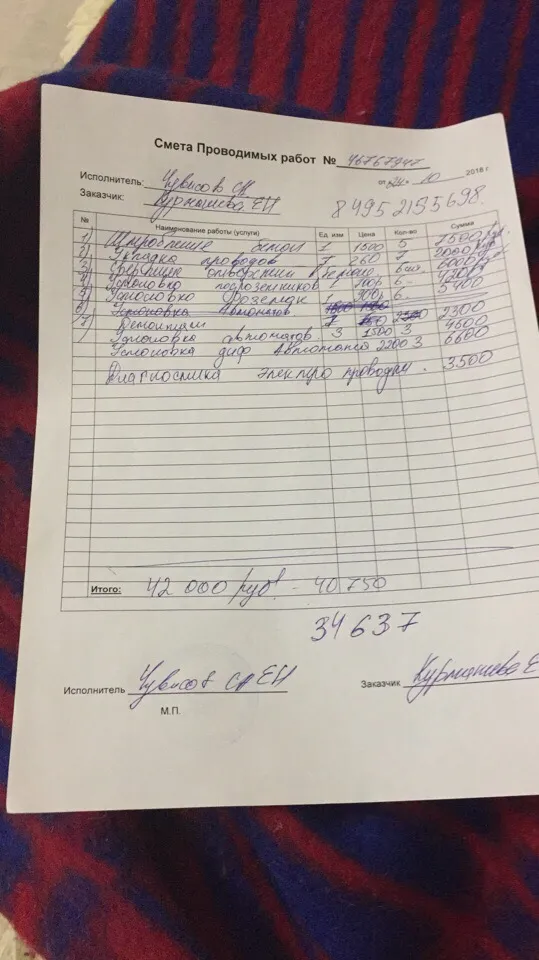 Смета Проводимых работ № 46767947
Исполнитель: Чувисов СА
от 24 10 2018 г.
Заказчик: Курмашева ЕН
8 495 2155698.
№ Наименование работы (услуги) Ед. изм Цена Кол-во Сумма
1) Штробление бетон 1 1500 5 7500 руб.
2) Укладка проводов 1 260 7
3) Сверление отверстий 6 шт.
4) Установка подрозетников 1 6 -
5) Установка Розеток 1 900р 6. 5400
6) Установка Автоматов.
7) Демонтаж 2300
Установка автоматов. 3 1500 3 4500
Установка диф Автомата 2200 3 6600
Диагностика электро проводки. 3500
Итого: 42 000 руб. - 40 750
34 637
Исполнитель Чувисов СА ЕН
Заказчик Курмашева Е
М.П.